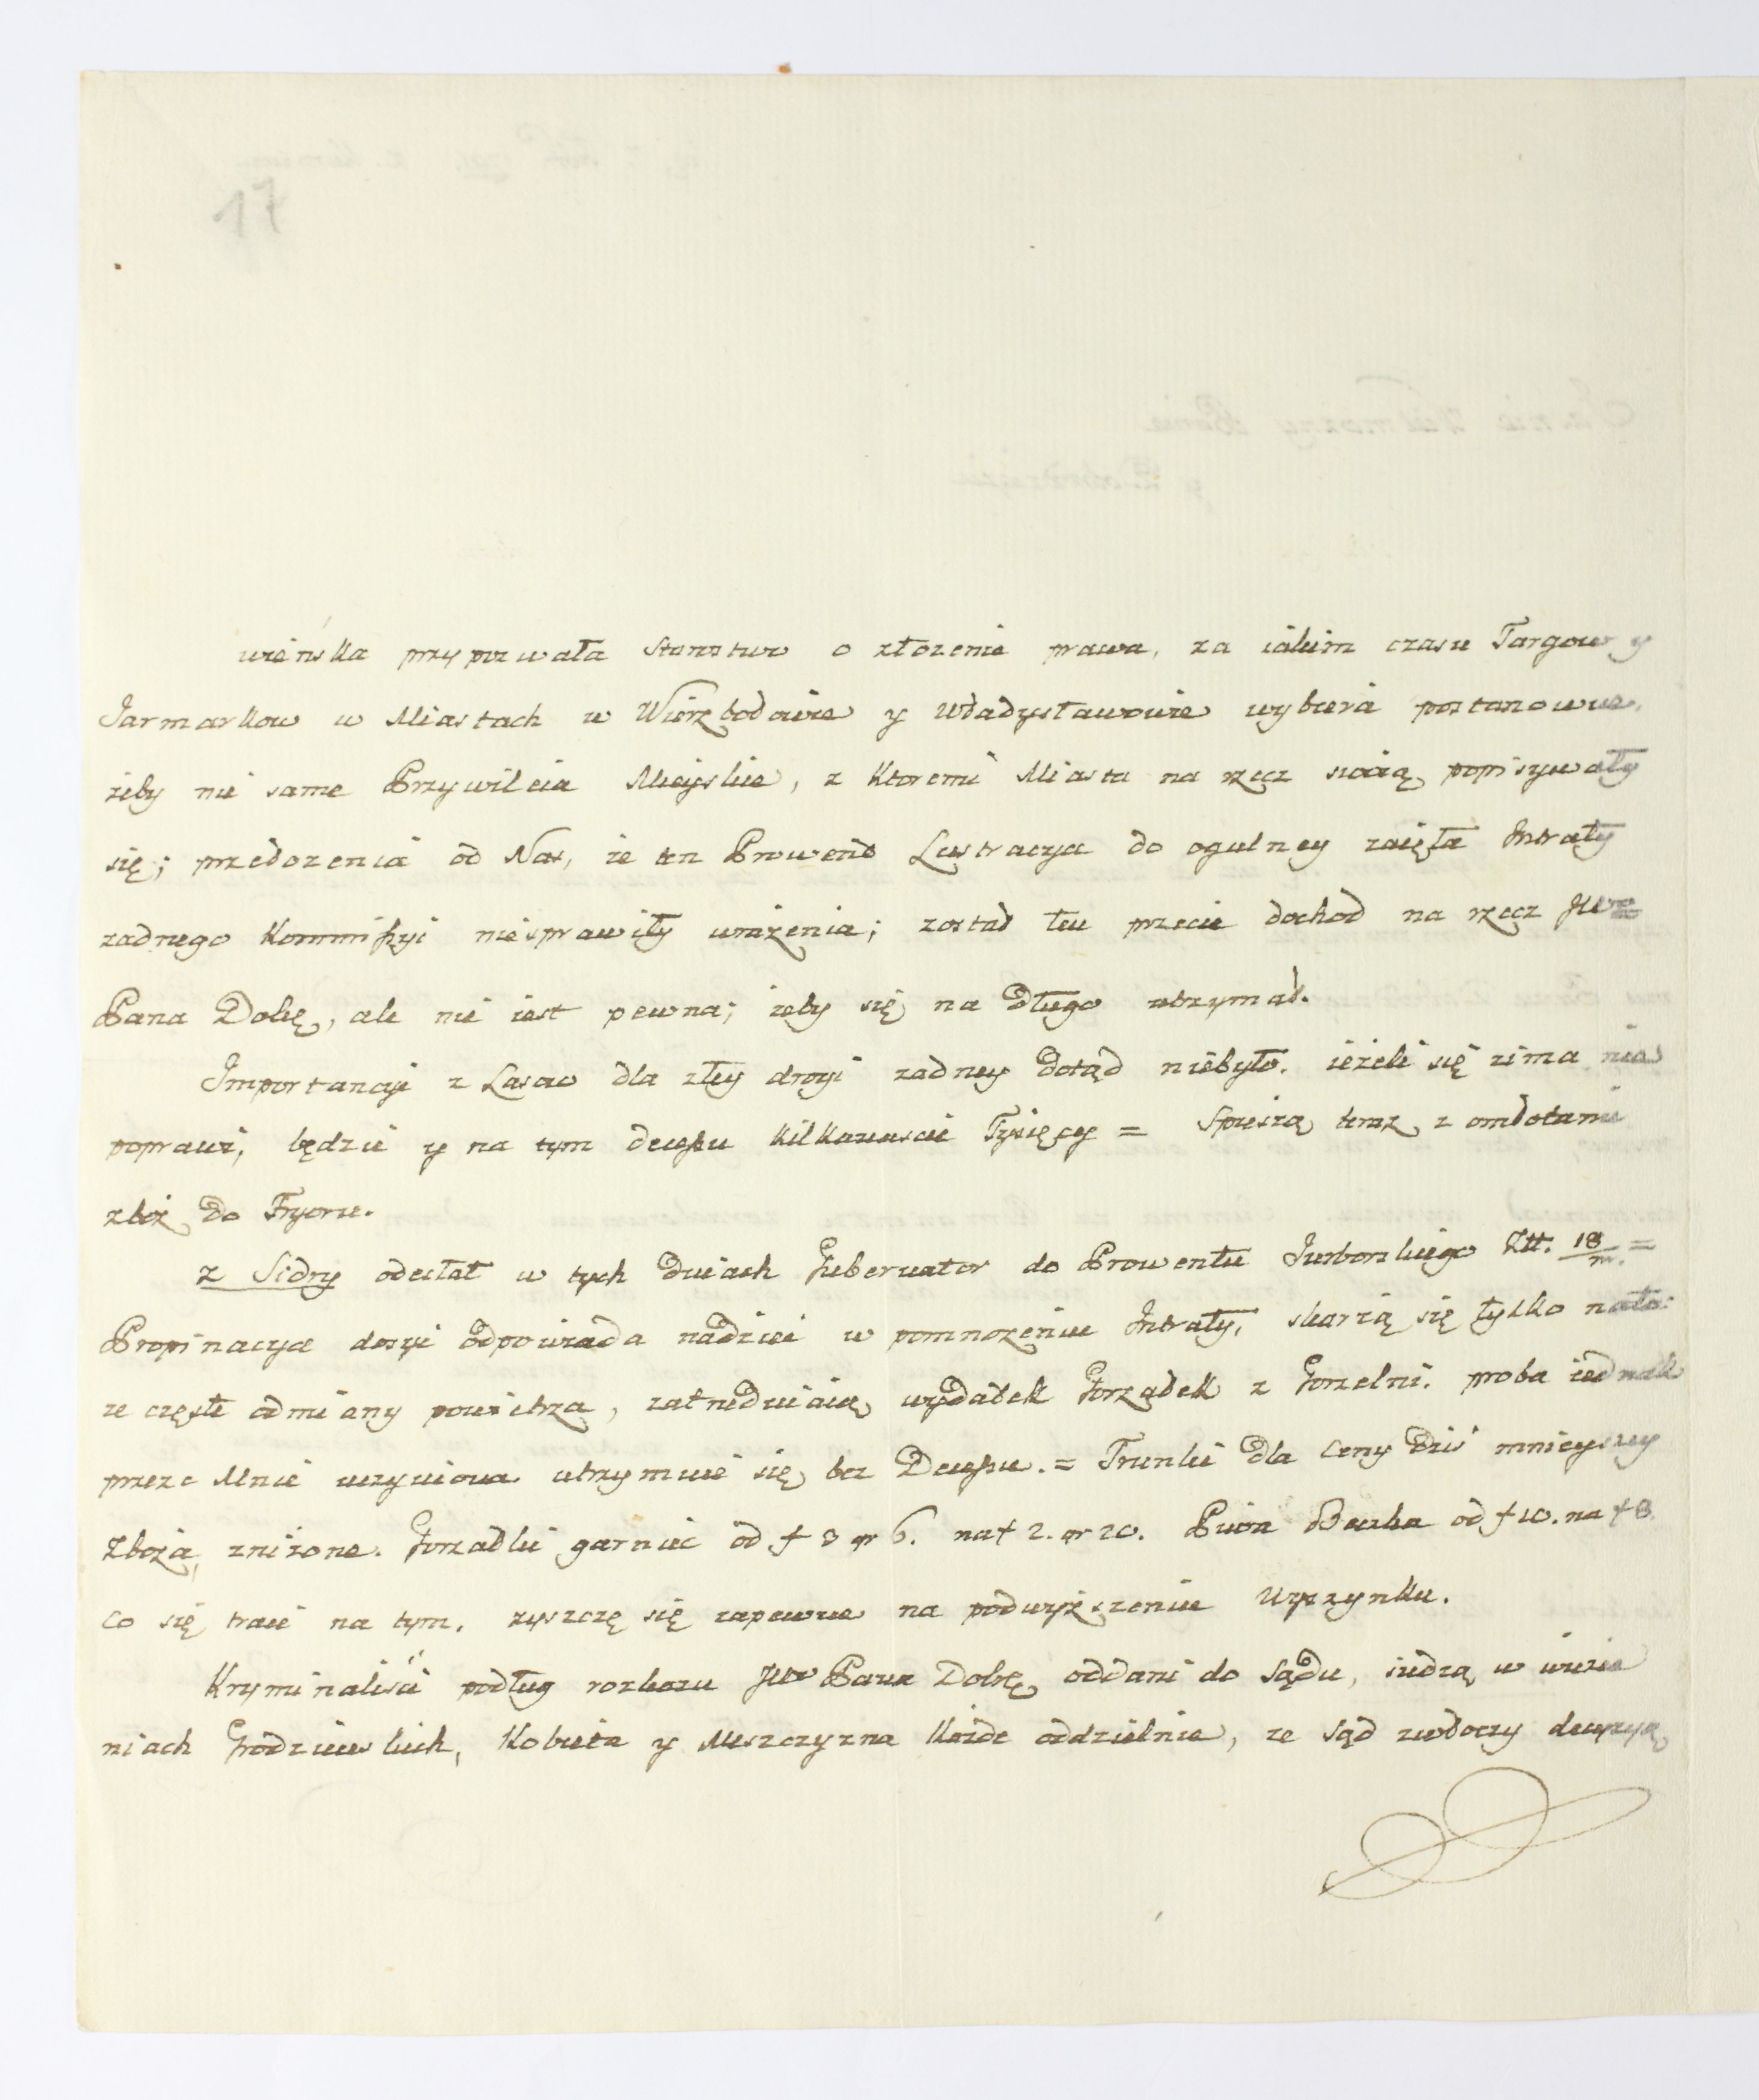 17
wieńska przypozwała Starostwo o złozenie prawa, za iakim czasu Targow y
Jarmarkow w Miastach w Wierzbołowie y Władysławowie wybiera postanowne,
ieby nie same Przywileia Mieyskie, z ktoremi Miasta na rzecz swoią popisywały
się; przełozenia od Nas, ze ten Prowent Lustracya do ogulney zaięła Intraty
zadnego Kommissyi niesprawiły wrażenia; został tu przecie dochod na rzecz JW
Pana Dobę, ale nie iest pewna; ieby się na długo utrzymał.
Importancyi z Lasow dla złey drogi zadney dotąd niebyło. ieżeli się zima nie
poprawi, będzie y na tym decessu kilkanascie Tysięcy = Spieszą teraz z omłotami
zboż do Fryoru.
z Sidry odesłał w tych dniach Gubernator do Prowentu Jurborskiego Złł. 18/m. =
Propinacya dosyć odpowiada nadziei w pomnozeniu Intraty, skarzą się tylko nato:
ze częste odmiany powietrza, zatrudniaią wydatek Gorzałek z Gorzelni. proba iednak
przeze Mnie uczyniona utrzymuie się bez Decessu. = Trunki dla Ceny dziś mnieyszey
Zboża, zniżone. Gorzałki garniec od f 3 gr 6. na f 2. gr 20. Piwa Beczka od f 10. na f 8.
co się traci na tym, zyszczę się zapewne na podwyższeniu Wyszynku.
Kryminaliści podług rozkazu JW Pana Dobę oddani do Sądu, siedzą w więzie
niach Grodzieńskich, Kobieta y Meszczyzna każde oddzielnie, ze Sąd zwłoczy decyzyą